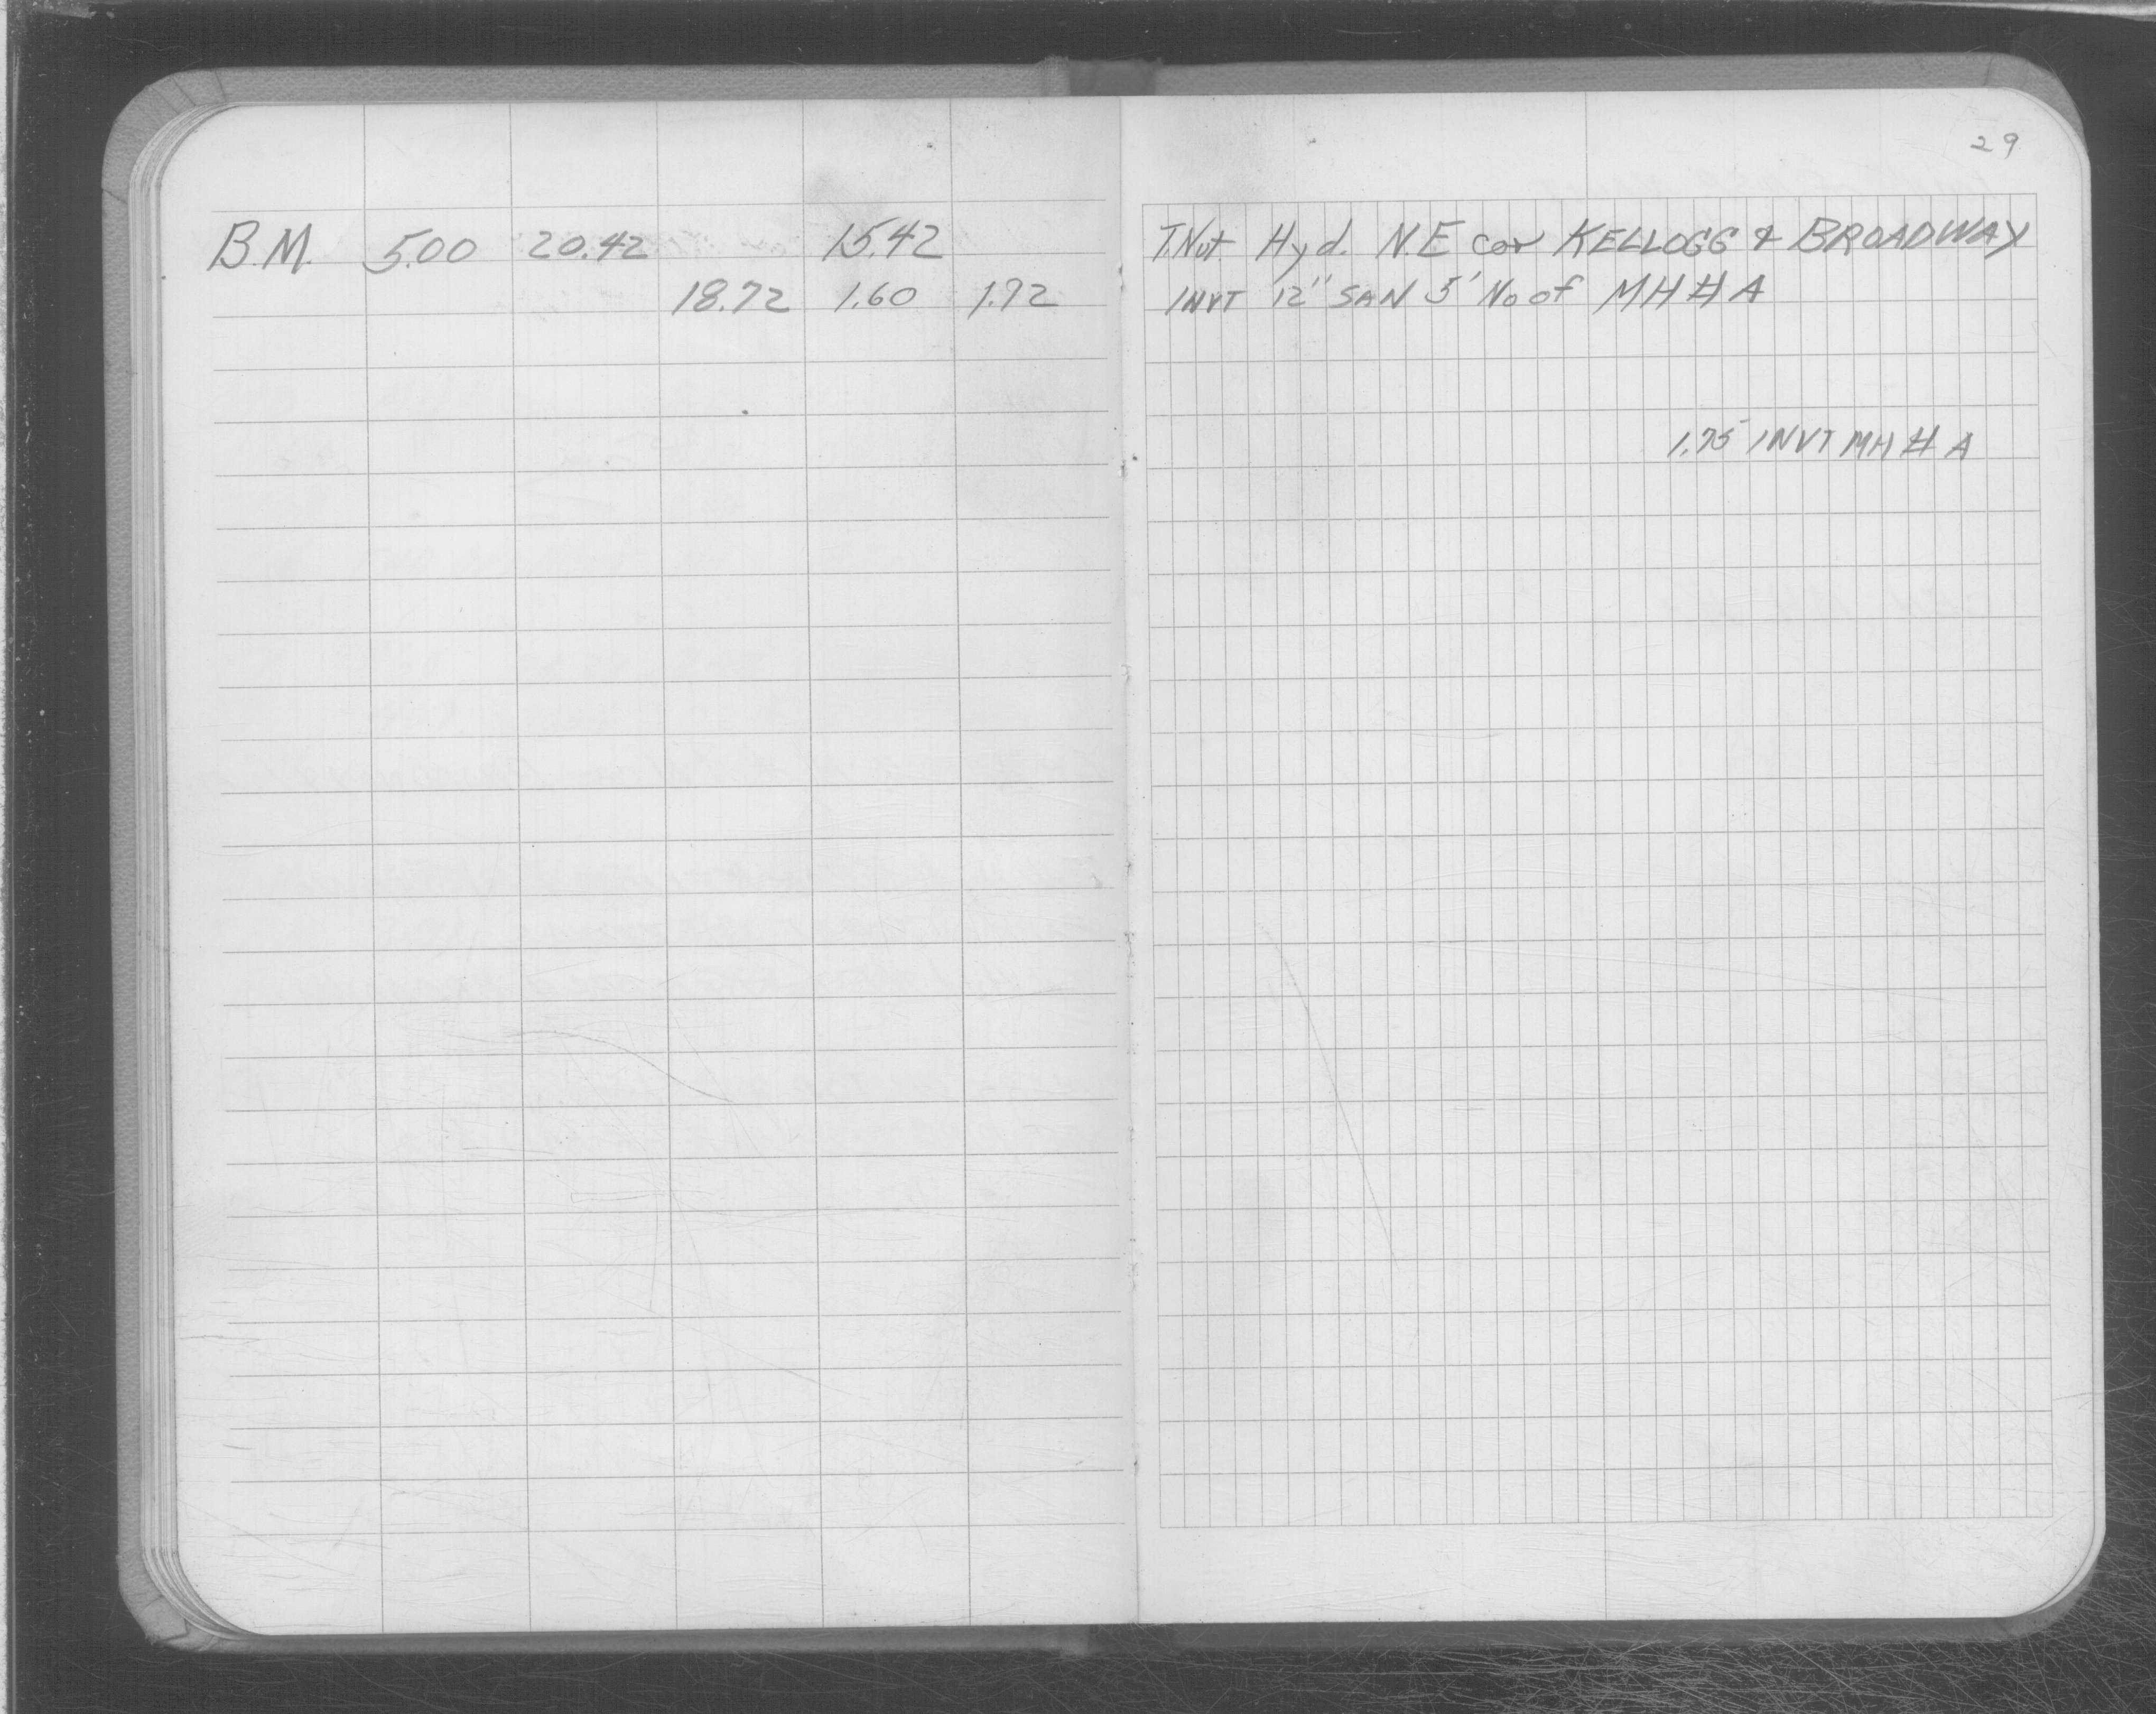 29
B.M. 5.00 20.42 15.42 T.Nut Hyd. N.E cor KELLOGG & BROADWAY
18.72 1.60 1.72 INVT 12" SAN 5' No of MH # A
1.75 INVT MH # A